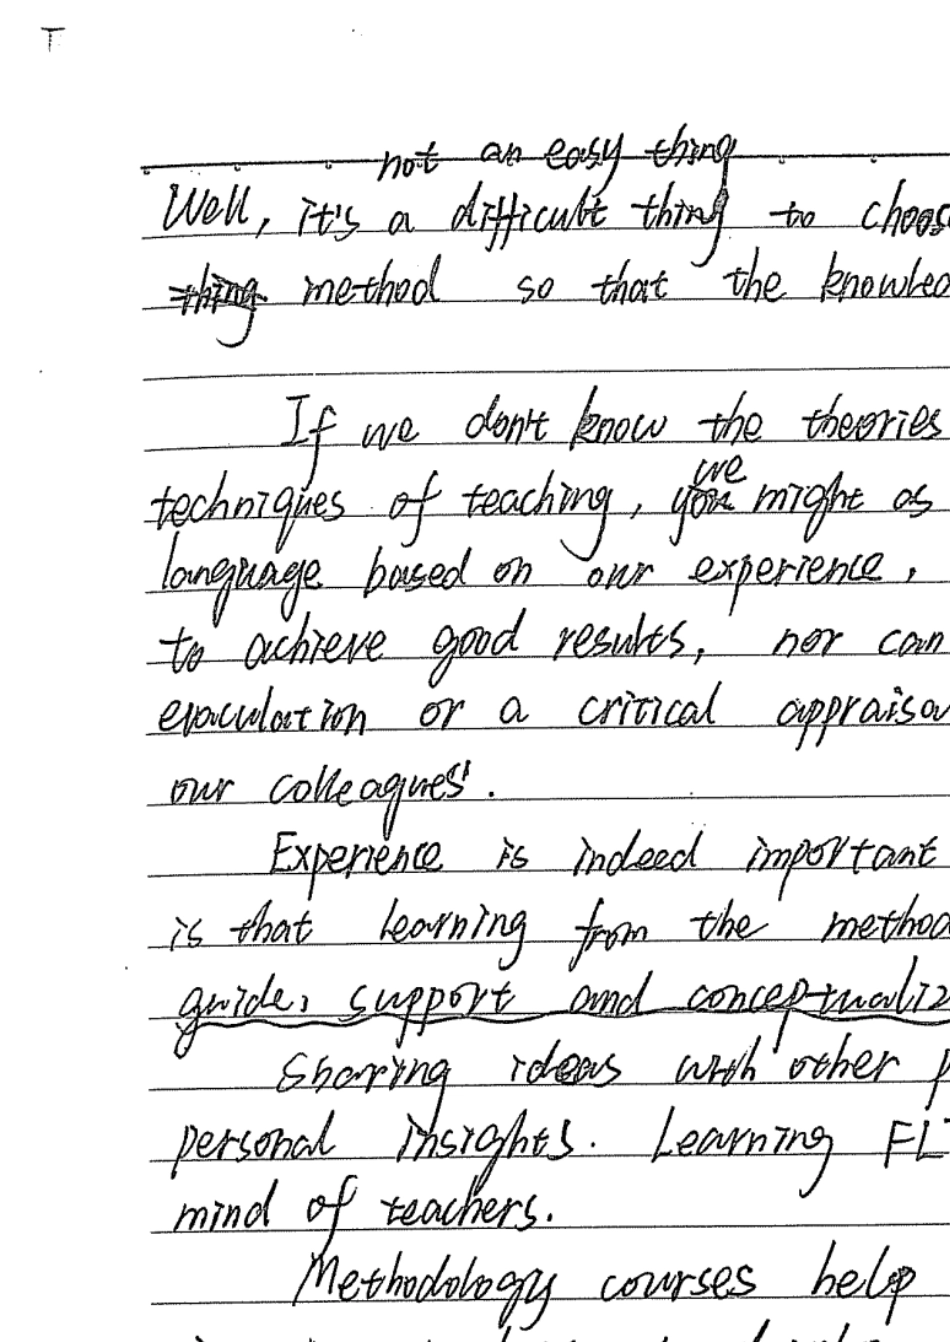 not an easy thing
Well, it's a difficult thing to choos
thing method so that the knowled
If we don't know the theories
we
techniques of teaching, you might as
language based on our experience,
to achieve good results, nor can
evaculation or a critical appraisa
our colleagues'.
Experience is indeed important
is that learning from the method
guide, support and conceptualiz
Sharing ideas with other p
personal insights. Learning FLT
mind of teachers.
Methodology courses help